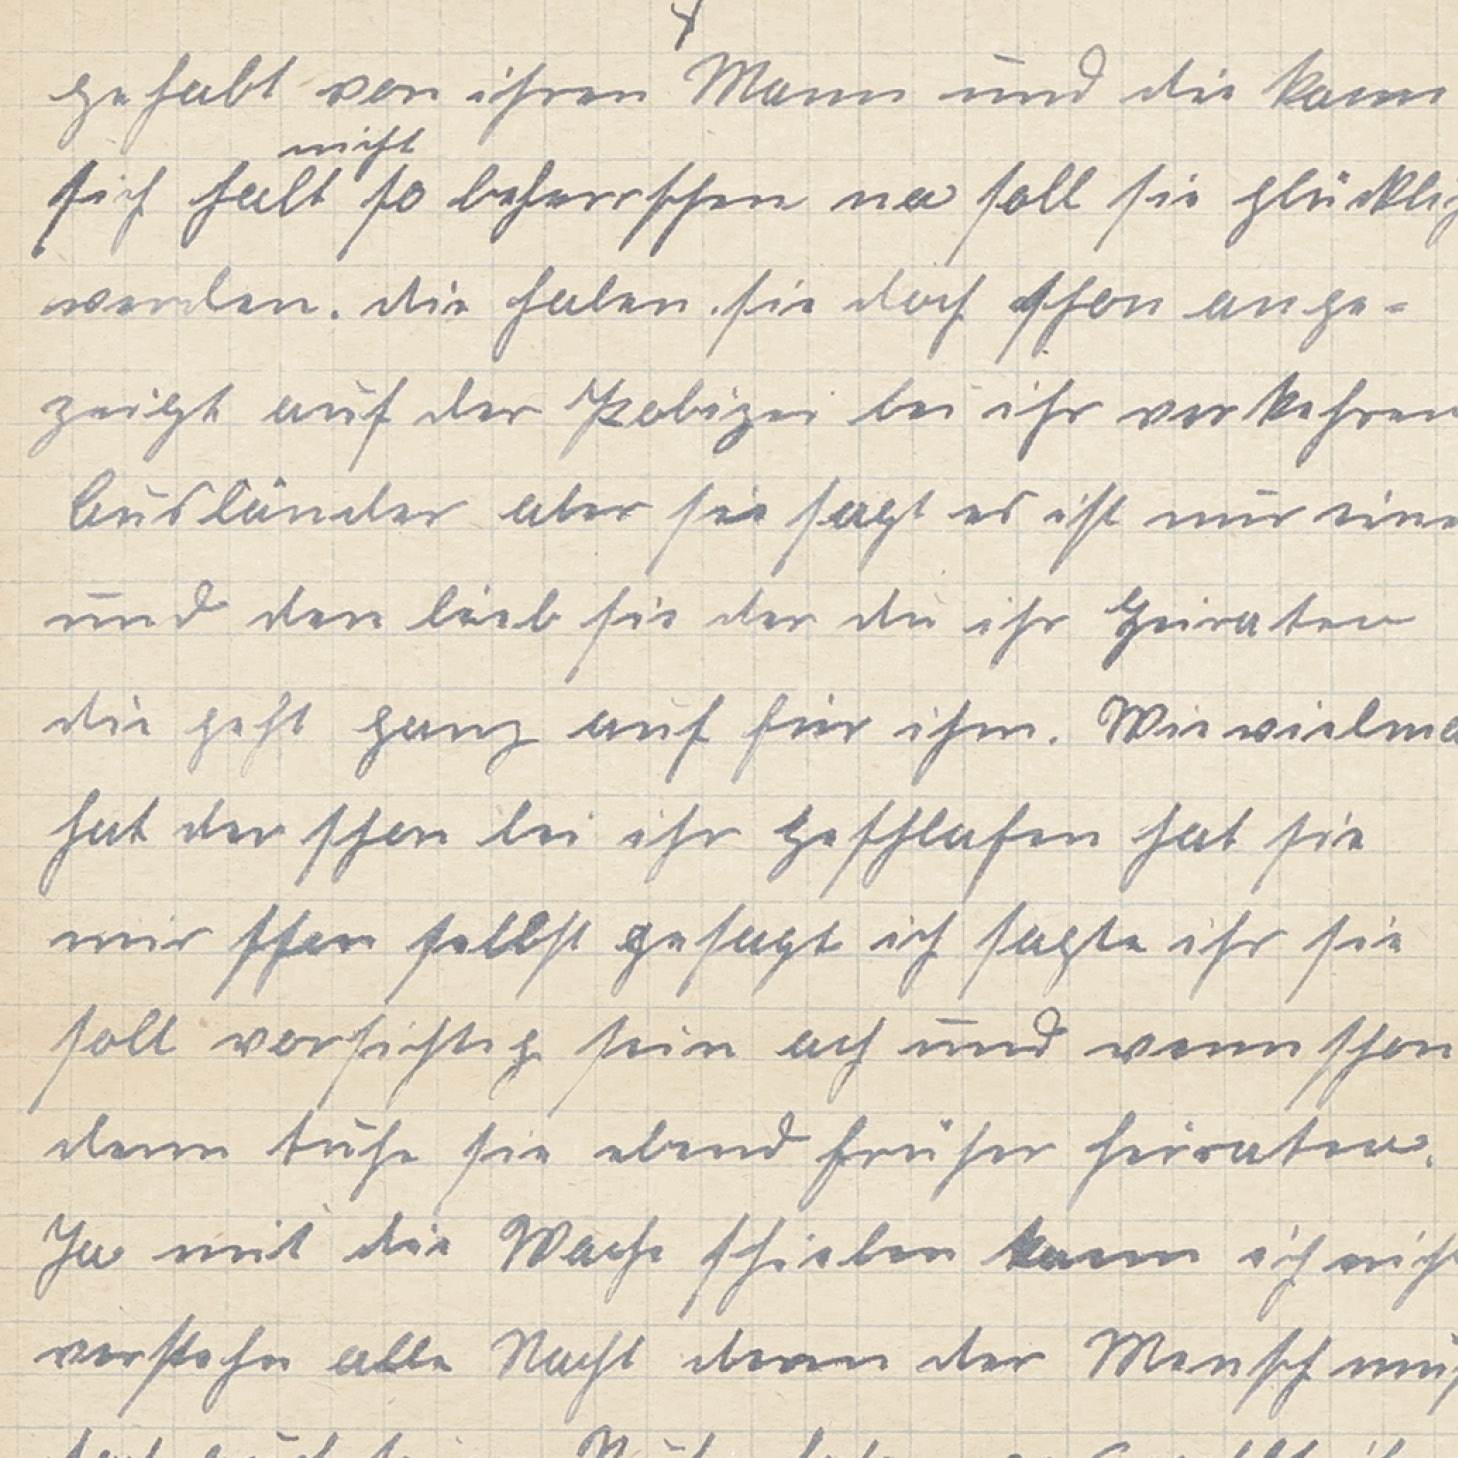 gehabt von ihren Mann und die kann
nicht
sich halt so beherrschen na soll sie glücklich
werden. die haben sie doch schon ange-
zeigt auf der Polizei bei ihr verkehren
Ausländer aber sie sagt es ist nur eine
und den lieb sie der du ihr Heiraten
die geht ganz auf für ihm. Wie vielma
hat der schon bei ihr geschlafen hat sie
mir schon selbst gesagt ich sagte ihr sie
soll vorsichtig sein ach und wenn schon
denn tuhe sie ebend früher heiraten.
Ja mit die Wache schieben kann ich nicht
verstehn alle Nacht denn der Mensch muß